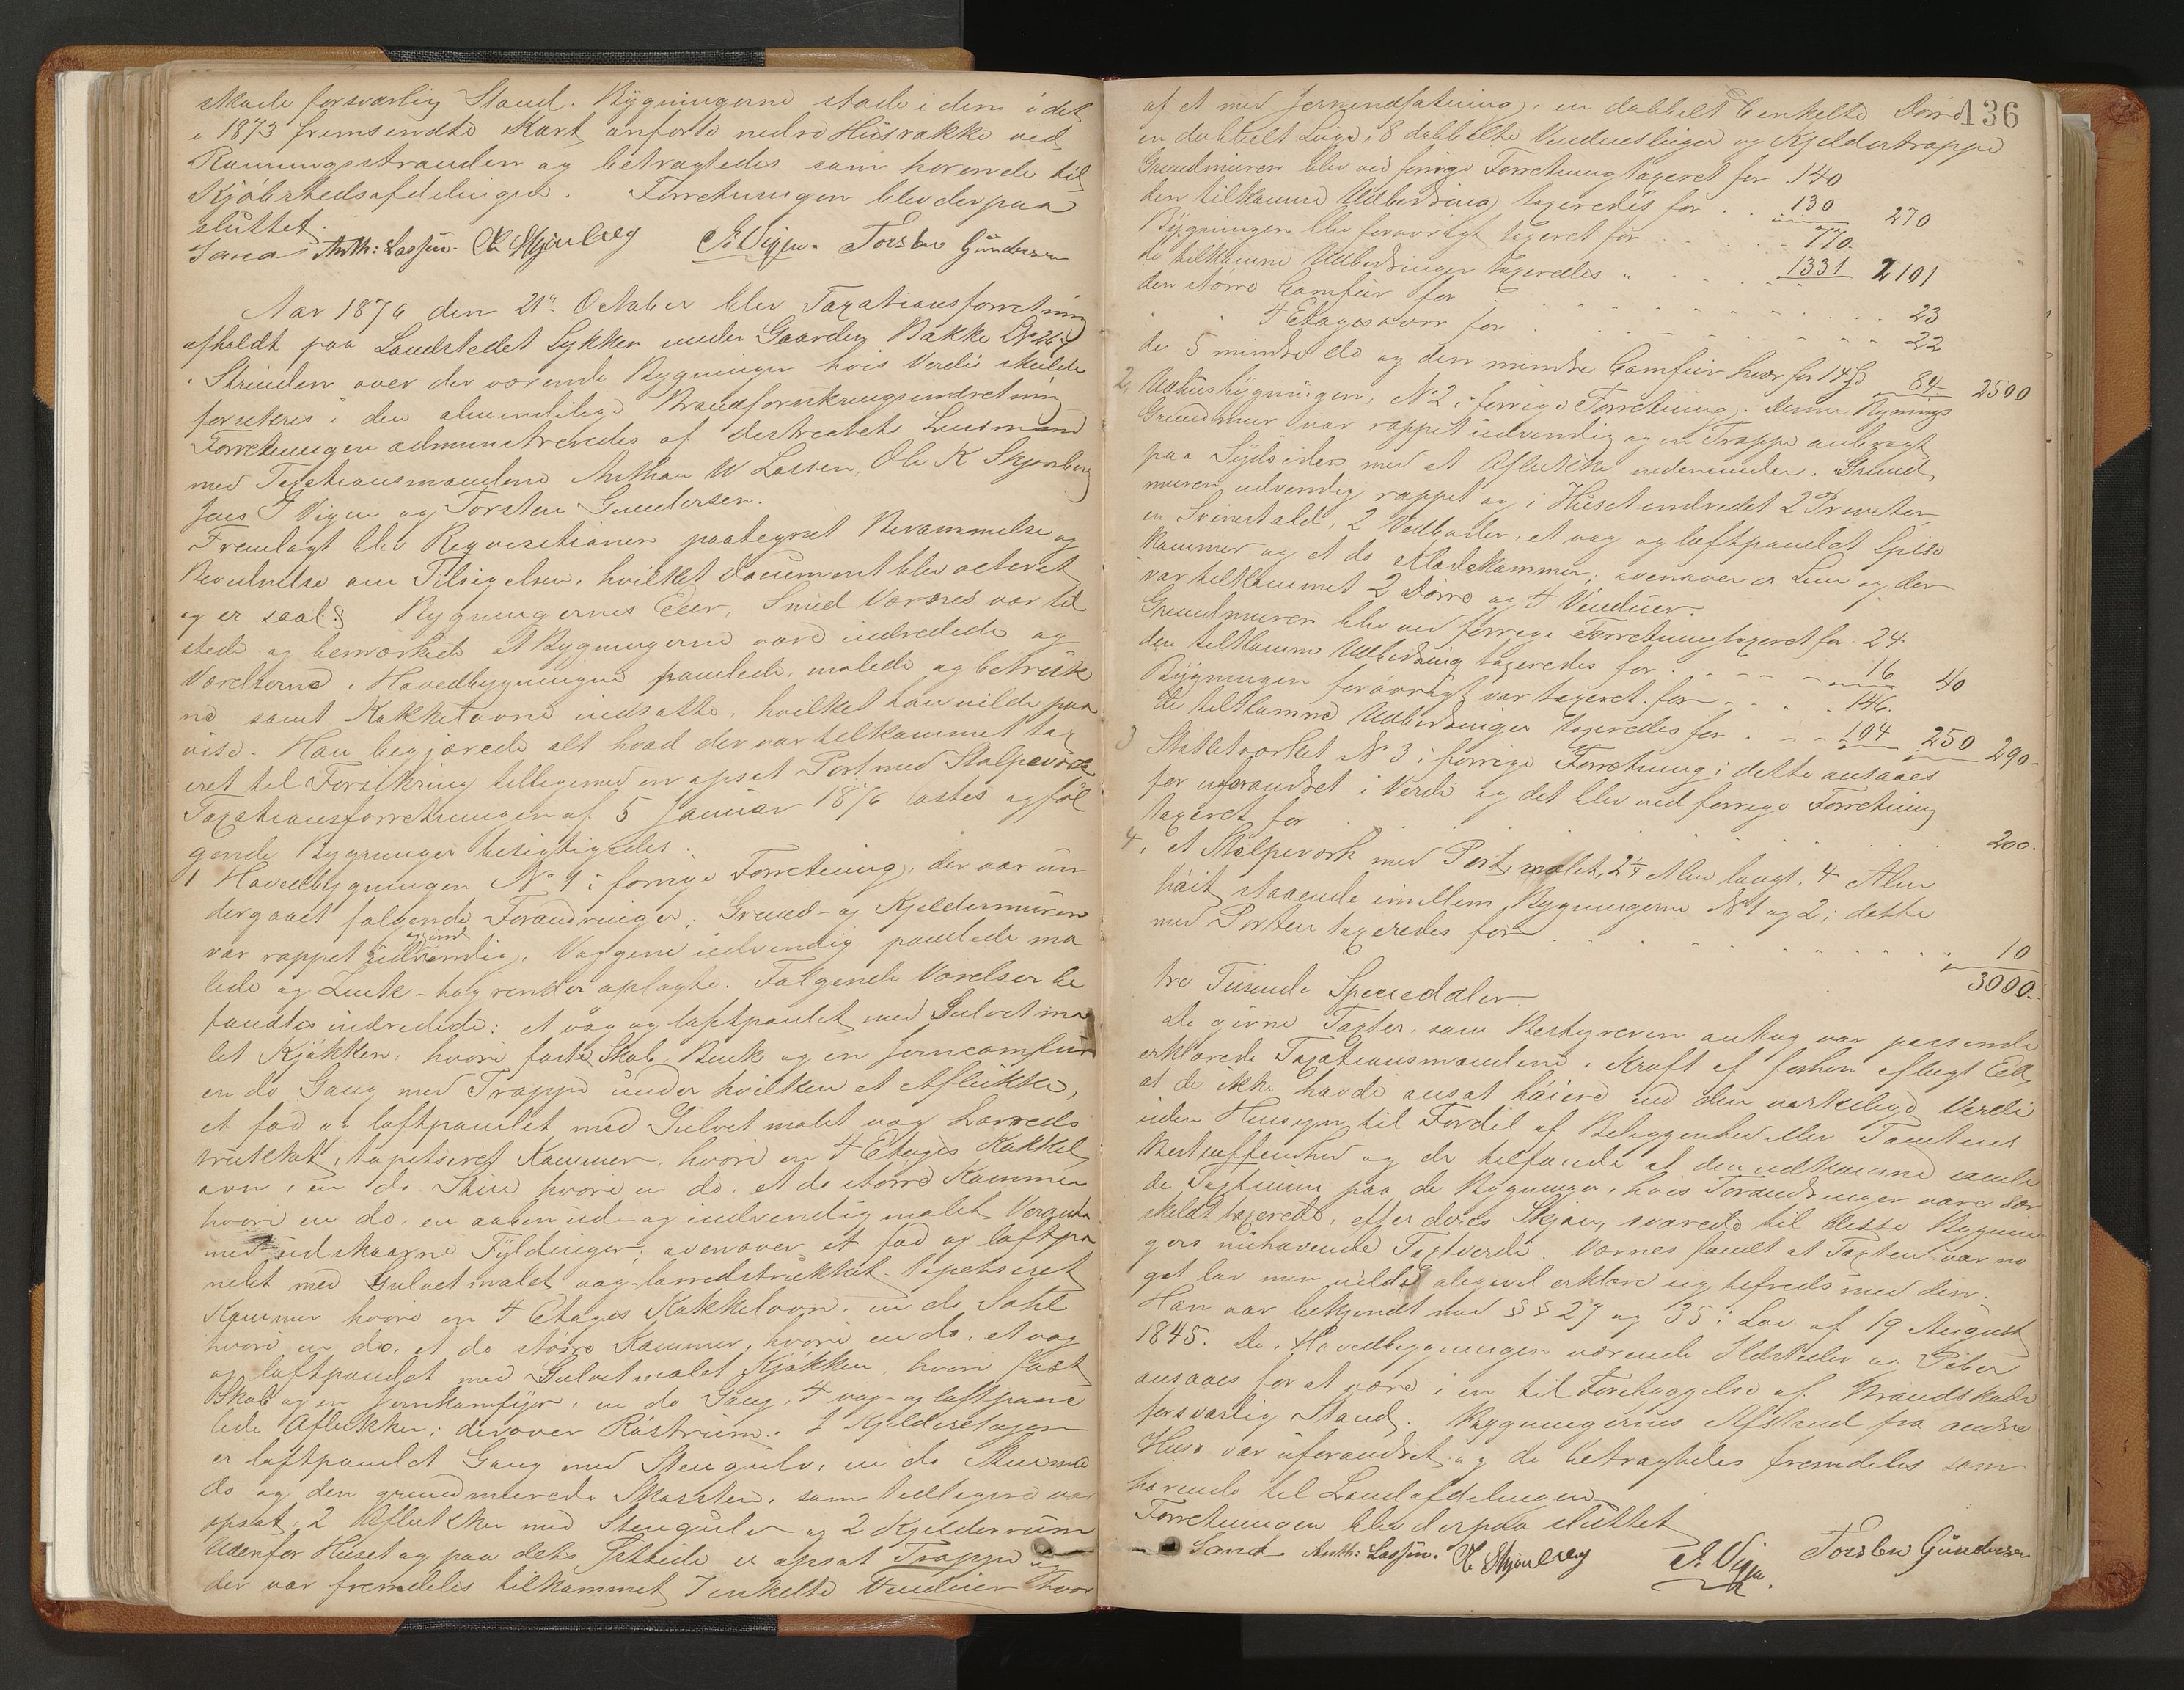 skade forsvarlig Stand. Bygningerne stode i den i det
i 1873 fremsendte Kart anførte nedre Husrække ved
Ranungsstranden og betragtedes som hørende til
Kjøbstedsafdelingen. Forretningen blev derpaa
sluttet.
Sand Anth: Lassen. O K Skjønberg J. Vigen. Torsten Gundersen
Aar 1876 den 21de October blev Taxationsforretning
afholdt paa Landstedet Lykken under Gaarden Bakke No 267
i Strinden over der værende Bygninger hvis Verdi skulde
forsikres i den almindelige Brandforsikringsindretning
Forretningen administreredes af Destrictets Lensmand
med Taxationsmændene Anthon W Lassen, Ole K Skjønberg
Jens J Vigen og Torsten Gundersen.
Fremlagt blev Reqvisitionen paategnet Berammelse og
Bevidnelse om Tilsigelsen, hvilket Document blev acteret
og er saal: § Bygningernes Eier, Smed Værnes var til
stede og bemærkede at Bygningerne vare indredede og
Værelserne i Hovedbygningen panlede, malede og betrukk
ne samt Kakkelovne indsatte, hvilket han vilde paa
vise. Han begjærede alt hvad der var tilkommet tax
eret til Forsikring tilligemed en opsat Port med Stolpeværk
Taxationsforretningen af 5 Januar 1876 læstes og føl
gende Bygninger besigtigedes:
1 Hovedbygningen No 1 i forrige Forretning, der var un
dergaaet følgende Forandringer; Grund- og Kjeldermuren
var rappet ud og indvendig. Væggene indvendig panlede ma
lede og Zink-tagrender oplagte. Følgende Værelser be
fandtes indredede: et væg og loftpanlet med Gulvet ma
let Kjøkken, hvori faste Skab, Benk og en Jerncomfur
en do Gang med Trappe under hvilken et Aflukke,
et fod og loftpanlet med Gulvet malet væg Lærreds
trukket, tapetseret Kammer, hvori en 4 Etages Kakkel
ovn, en do Stue hvori en do, et do større Kammer
hvori en do, en aaben ud- og indvendig malet Veranda
med udskaarne Fyldinger; ovenover et fod og loftpa
nelet med Gulvet malet væg-lærredstrukket tapetseret
Kammer hvori en 4 Etages Kakkelovn, en do Sahl
hvori en do, et do større Kammer, hvori en do, et væg
og loftpanlet med Gulvet malet Kjøkken, hvori fast
Skab og en Jernkomfyr, en do Gang, 4 væg- og loftpane
lede Aflukker; derover Røstrum. I Kjelderetagen
er loftpanlet Gang med Stengulv, en do Stue med
do og den grundmurede Skorsten, som tidligere var
opsat, 2 Aflukker med Stengulv og 2 Kjelderrum
Udenfor Huset og paa dets Østside er opsat Trappe i
der var fremdeles tilkommet 7 enkelte Vinduer hvor
136
af et med Jernindfatning, en dobbelt 6 enkelte Dørre
en dobbelt Luge, 8 dobbelte Vinduesluger og Kjeldertrappe
Grundmuren blev ved forrige Forretning taxeret for 140
den tilkomne Udbedring taxeredes for . . 130 270
Bygningen blev forøvrigt taxeret for 770.
de tilkomne Udbedringer taxeredes " 1331 2101
den større Comfur for 23
" " 4 Etagesovn for 22
de 5 mindre do og den mindre Comfur hver for 14 84 2500
2, Udhusbygningen, No 2 i forrige Forretning. Denne Bygnings
Grundmur var rappet udvendig og en Trappe anbragt
paa Sydsiden med et Aflukke nedenunder. Grund
muren udvendig rappet og i Huset indredet 2 Priveter,
en Svinestald, 2 Vedboder, et væg og loftpanlet Spise
kammer og et do Madkammer; ovenover er Lem og der
var tilkommet 2 Dørre og 4 Vinduer.
Grundmuren blev ved forrige Forretning taxeret for 24
den tilkomne Udbedring taxeredes for 16 40
Bygningen forøvrigt var taxeret for 146.
de tilkomne Udbedringer taxeredes for 104 250 290
3 Stakitværket No 3 i forrige Forretning; dette ansaaes
for uforandret i Verdi og det blev ved forrige Forretning
taxeret for 200.
4, et Stolpeværk med Port, malet, 2¼ Alen langt, 4 Alen
høit staaende imellem Bygningerne No 1 og 2; dette
med Porten taxeredes for 10
tre Tusinde Speciedaler 3000.
De givne Taxter, som Bestyreren antog var passende
erklærede Taxationsmændene i Kraft af forhen aflagt Ed
at de ikke havde ansat høiere end den virkelige Verdi
uden Hensyn til Fordel af Beliggenhed eller Tomtens
Beskaffenhed og de tilføiede at den udkomne samle
de Taxtsum paa de Bygninger, hvis Forandringer vare sær
skildt taxerede, efter deres Skjøn svarede til disse Bygnin
gers nuhavende Taxtverdi. Værnes fandt at Taxten var no
get lav men vilde alligevel erklære sig tilfreds med den.
Han var bekjendt med §§ 27 og 35 i Lov af 19 August
1845. De i Hovedbygningen værende Ildsteder og Piber
ansaaes for at være i en til Forebyggelse af Brandskade
forsvarlig Stand. Bygningernes Afstand fra andre
Huse var uforandret og de betragtedes fremdeles som
hørende til Landafdelingen
Forretningen blev derpaa sluttet
Sand Anth: Lassen. O K Skjønberg J. Vigen. Torsten Gundersen